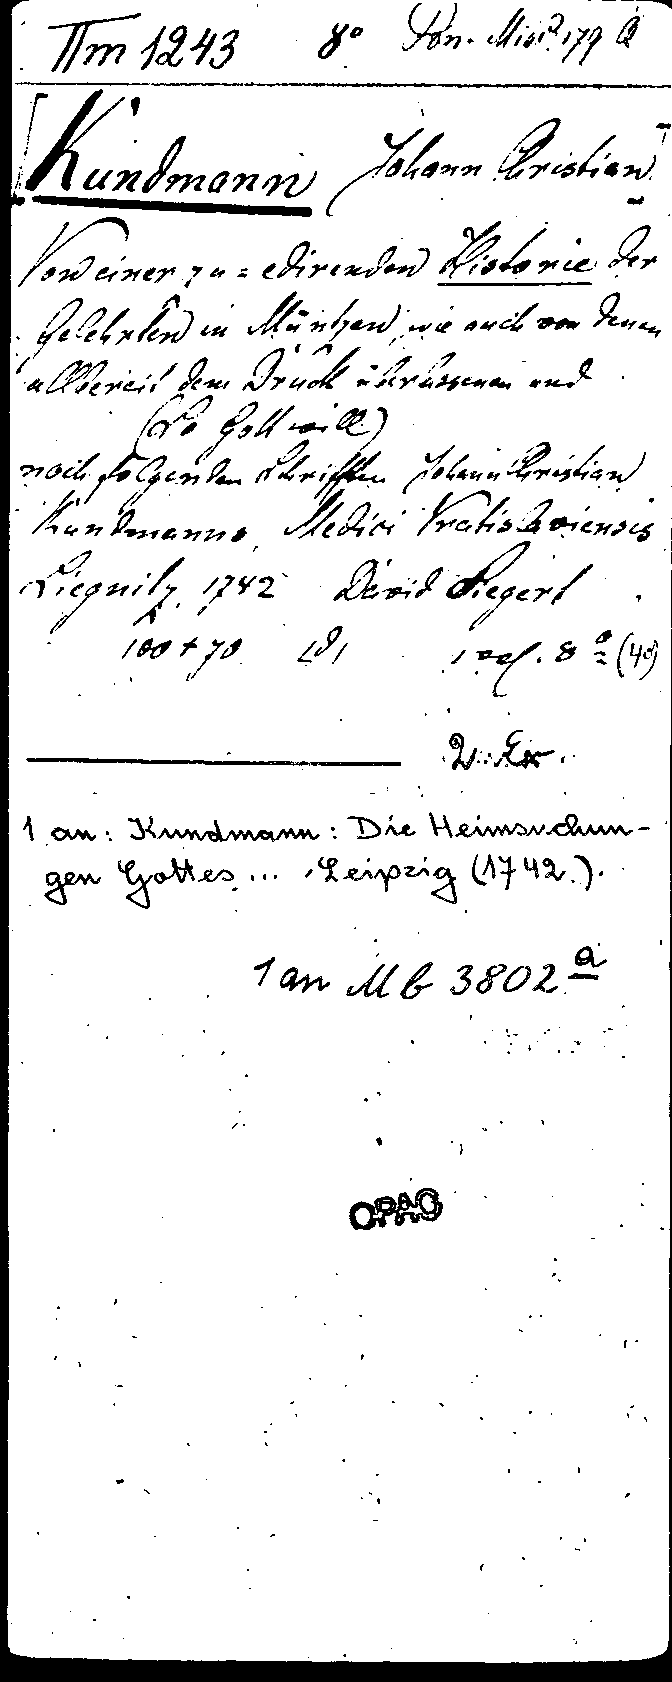 IIm 1243 8° Pon. Misc. 179 a
[Kundmann Johann Christian]
Von einer zu = edirenden Historie der
Gelehrten in Müntzen, wie auch von denen
allbereit dem Druck überlassenen und
(so Gott will)
noch folgenden Schrifften Johann Christian
Kundmanns, Medici Vratislaviensis
Liegnitz, 1742 David Siegert
100 + 70 1 vol. 8° (4°)
2 Ex.
1 an: Kundmann: Die Heimsuchun-
gen Gottes... Leipzig (1742.).
1 an Mb 3802 a
OPAC